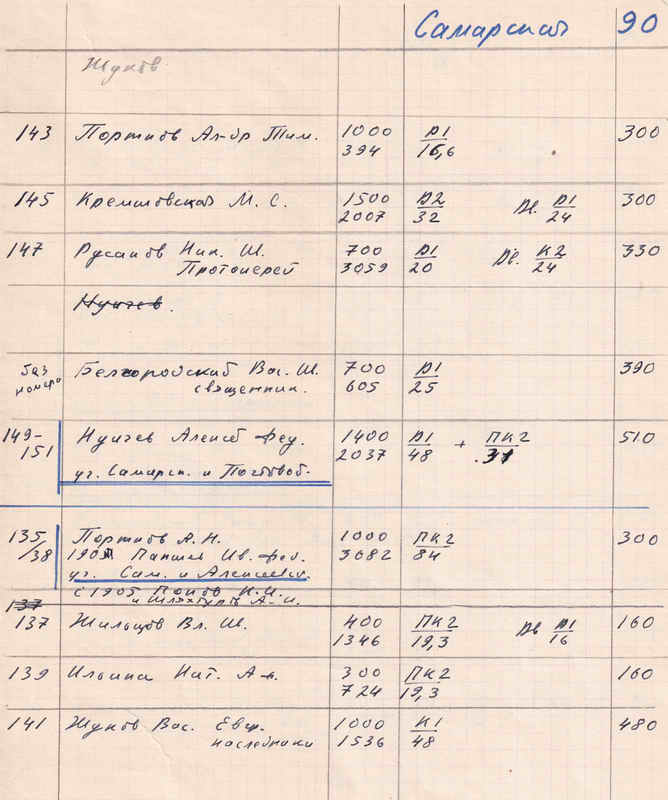 Самарская 90
Жуков
143 Портнов Ал-др Тим. 1000 Д1 300
394 16,6
145 М. С. 1500 Д2 Дв. Д1 300
2007 32 24
147 Русанов Ник. И. 700 Д1 Дв. К2 330
Протоиерей 3059 20 24
Нуичев.
без Белгородский Вас. И. 700 Д1 390
номера священник. 605 25
149- Нуичев Алексей Фед. 1400 Д1 + ПК2 510
151 уг. Самарск. и 2037 48 31
135 Портнов А.Н. 1000 ПК2 300
/38 Ив. Фед. 3082 84
уг. Сам. и Алексеевск.
с 1905 Попов Н.И.
137 и А-и.
137 Жильцов Вл. И. 400 ПК2 Дв Д1 160
1346 19,3 16
139 Ильина Нат. Ал. 300 ПК2 160
724 19,3
141 Жуков Вас. Евф. 1000 К1 480
наследники 1536 48